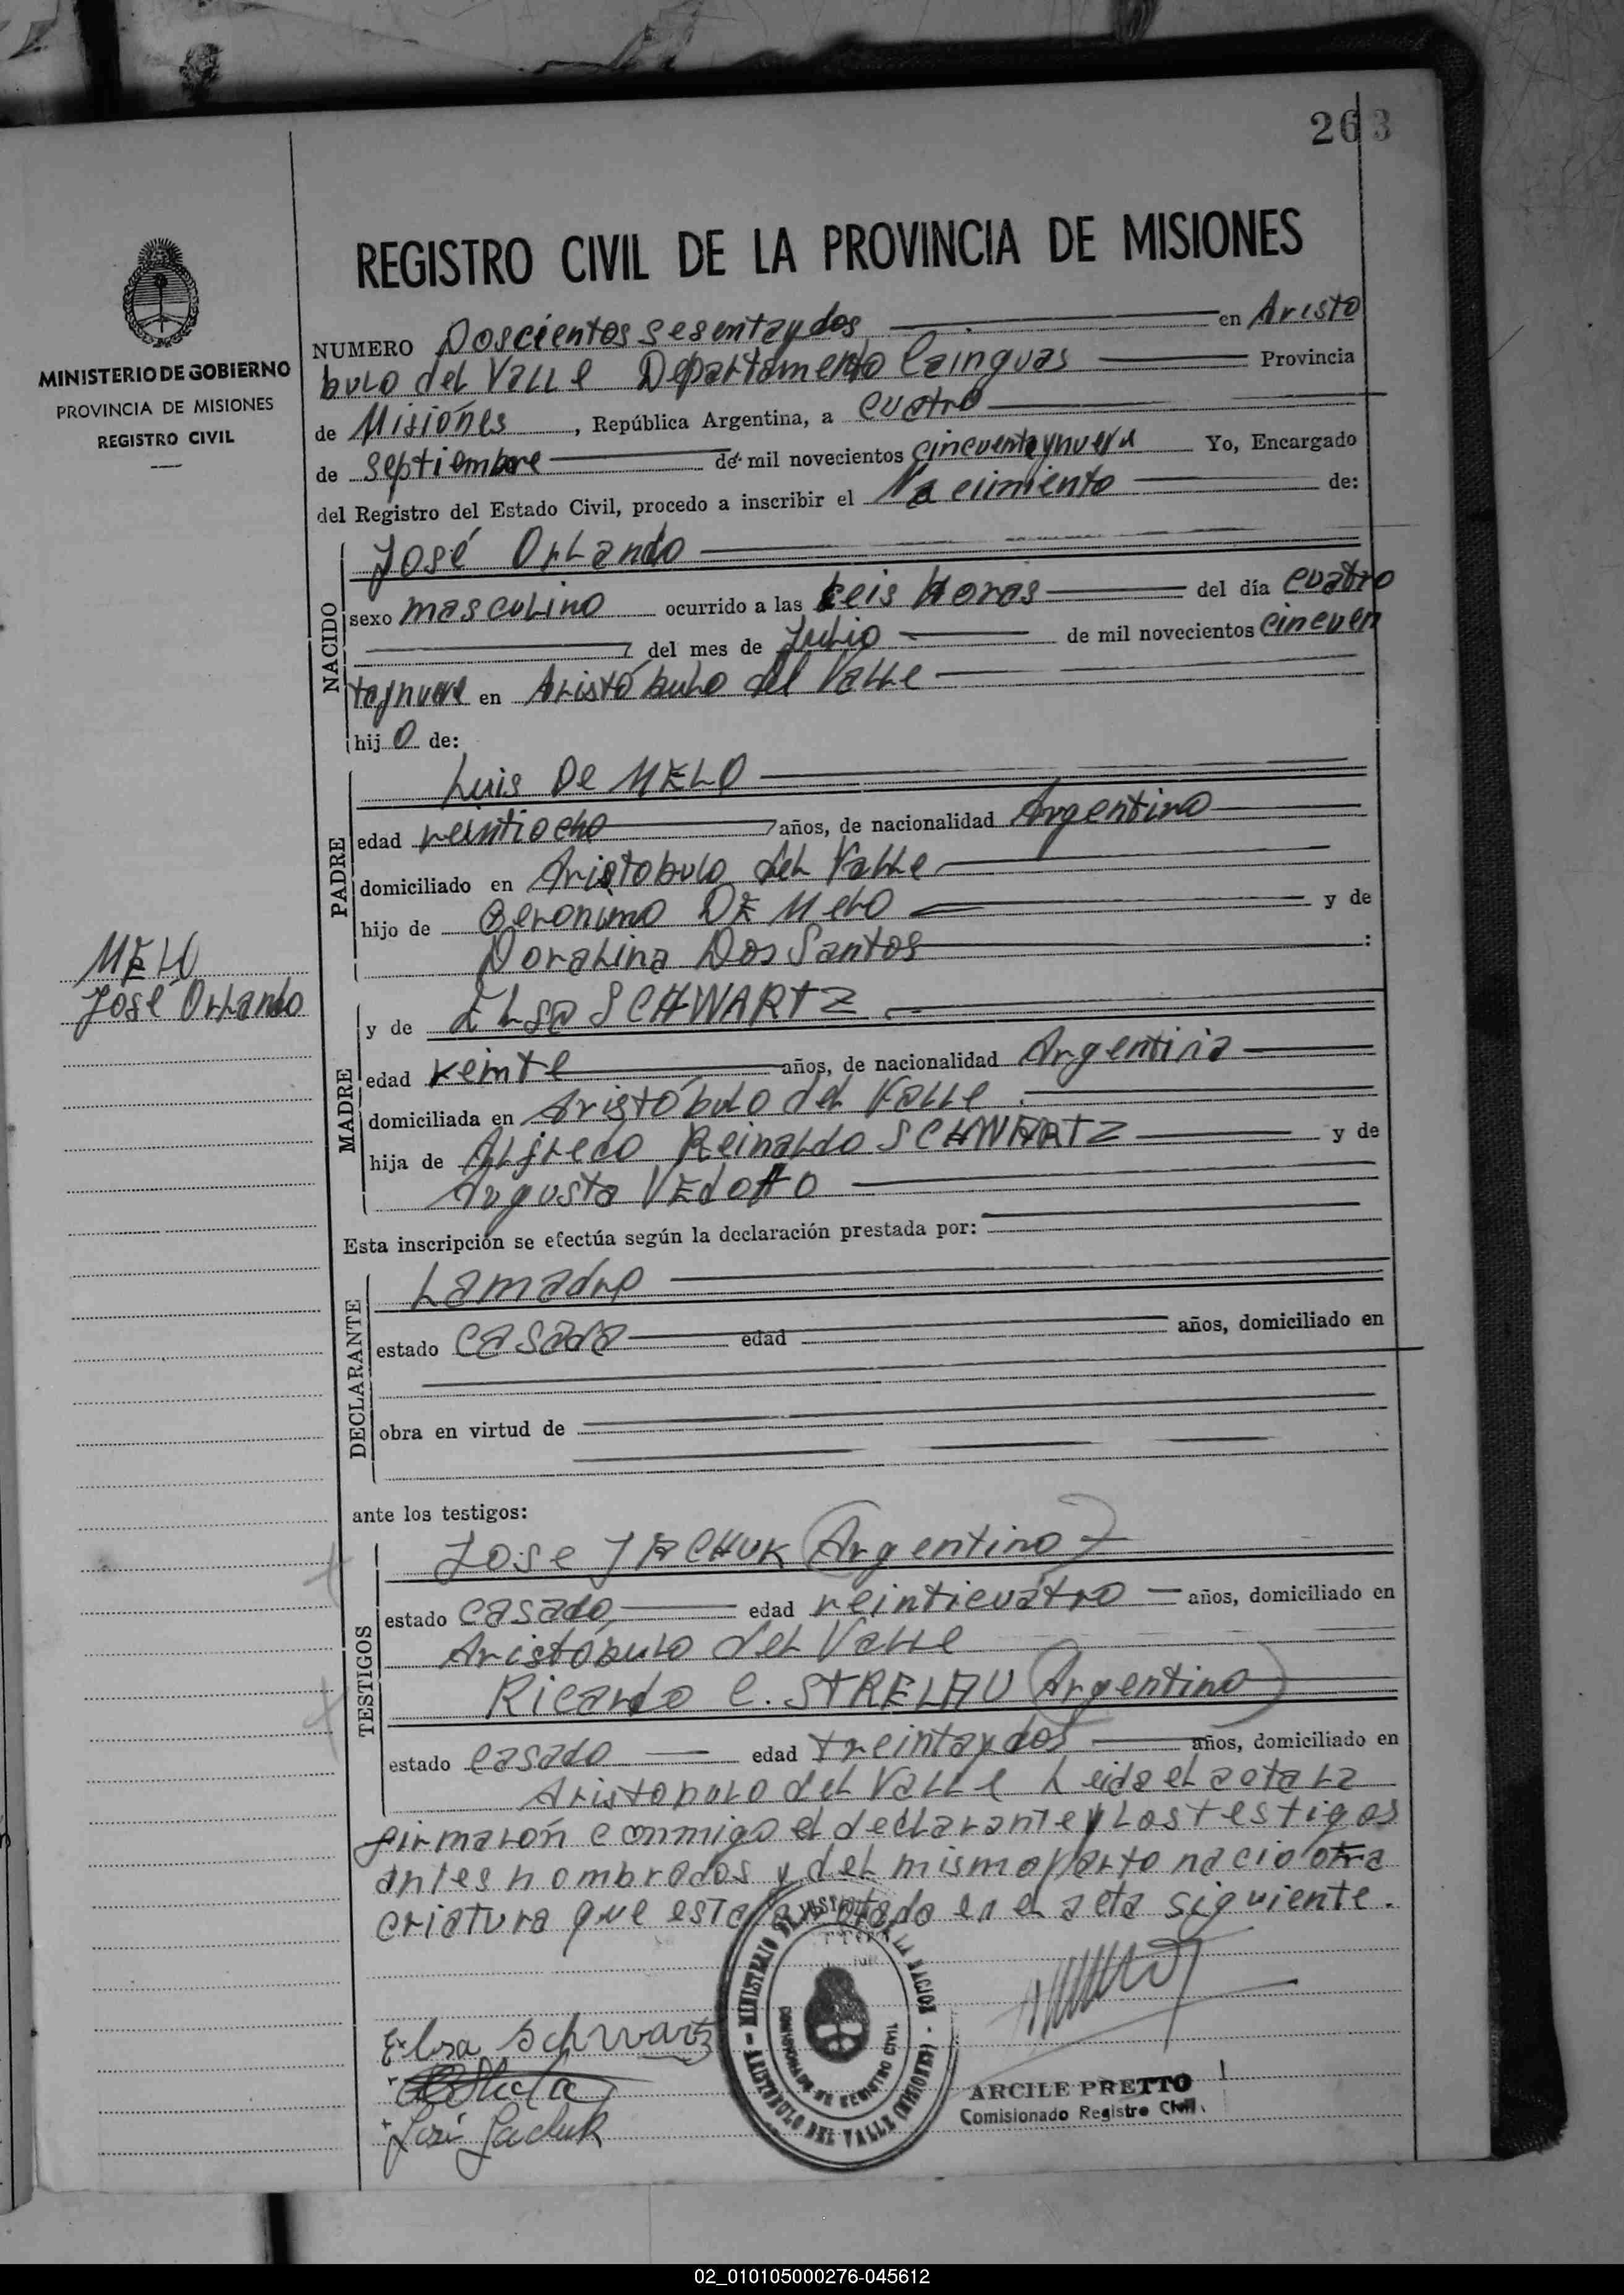 263
REGISTRO CIVIL DE LA PROVINCIA DE MISIONES
MINISTERIO DE GOBIERNO
PROVINCIA DE MISIONES
REGISTRO CIVIL
NUMERO Doscientos sesentaydos en Aristo
bulo del Valle Departamento Cainguas Provincia
de Misiones, República Argentina, a cuatro
de septiembre de mil novecientos cincuentaynueve Yo, Encargado
del Registro del Estado Civil, procedo a inscribir el Nacimiento de:
NACIDO
José Orlando
sexo masculino ocurrido a las seis Horas del día cuatro
del mes de Julio de mil novecientos cincuen
taynueve en Aristóbulo del Valle
hijo de:
PADRE
Luis De MELO
edad veintiocho años, de nacionalidad Argentino
domiciliado en Aristobulo del Valle
hijo de Geronimo DE Melo y de
Doralina Dos Santos :
MELO
José Orlando
MADRE
y de Elsa SCHWARTZ
edad veinte años, de nacionalidad Argentina
domiciliada en Aristóbulo del Valle
hija de Alfredo Reinaldo SCHWARTZ y de
Augusta VEdoTTo
Esta inscripción se efectúa según la declaración prestada por:
DECLARANTE
La madre
estado casada edad años, domiciliado en
obra en virtud de
ante los testigos:
TESTIGOS
Jose JACHUK (Argentino)
estado casado, edad veinticuatro años, domiciliado en
Aristóbulo del Valle
Ricardo C. STRELAU (Argentino)
estado casado edad treintaydos años, domiciliado en
Aristobulo del Valle Leida el acta la
firmarón conmigo el declarante y Los testigos
antes nombrados y del mismo parto nacio otra
criatura que esta anotado en el acta siguiente.
Elsa Schwartz
José Jachuk
MINISTERIO DE JUSTICIA DE LA NACION
COMISIONADO DE REGISTRO CIVIL
ARISTOBULO DEL VALLE (MISIONES)
ARCILE PRETTO
Comisionado Registro Civil
02_010105000276-045612